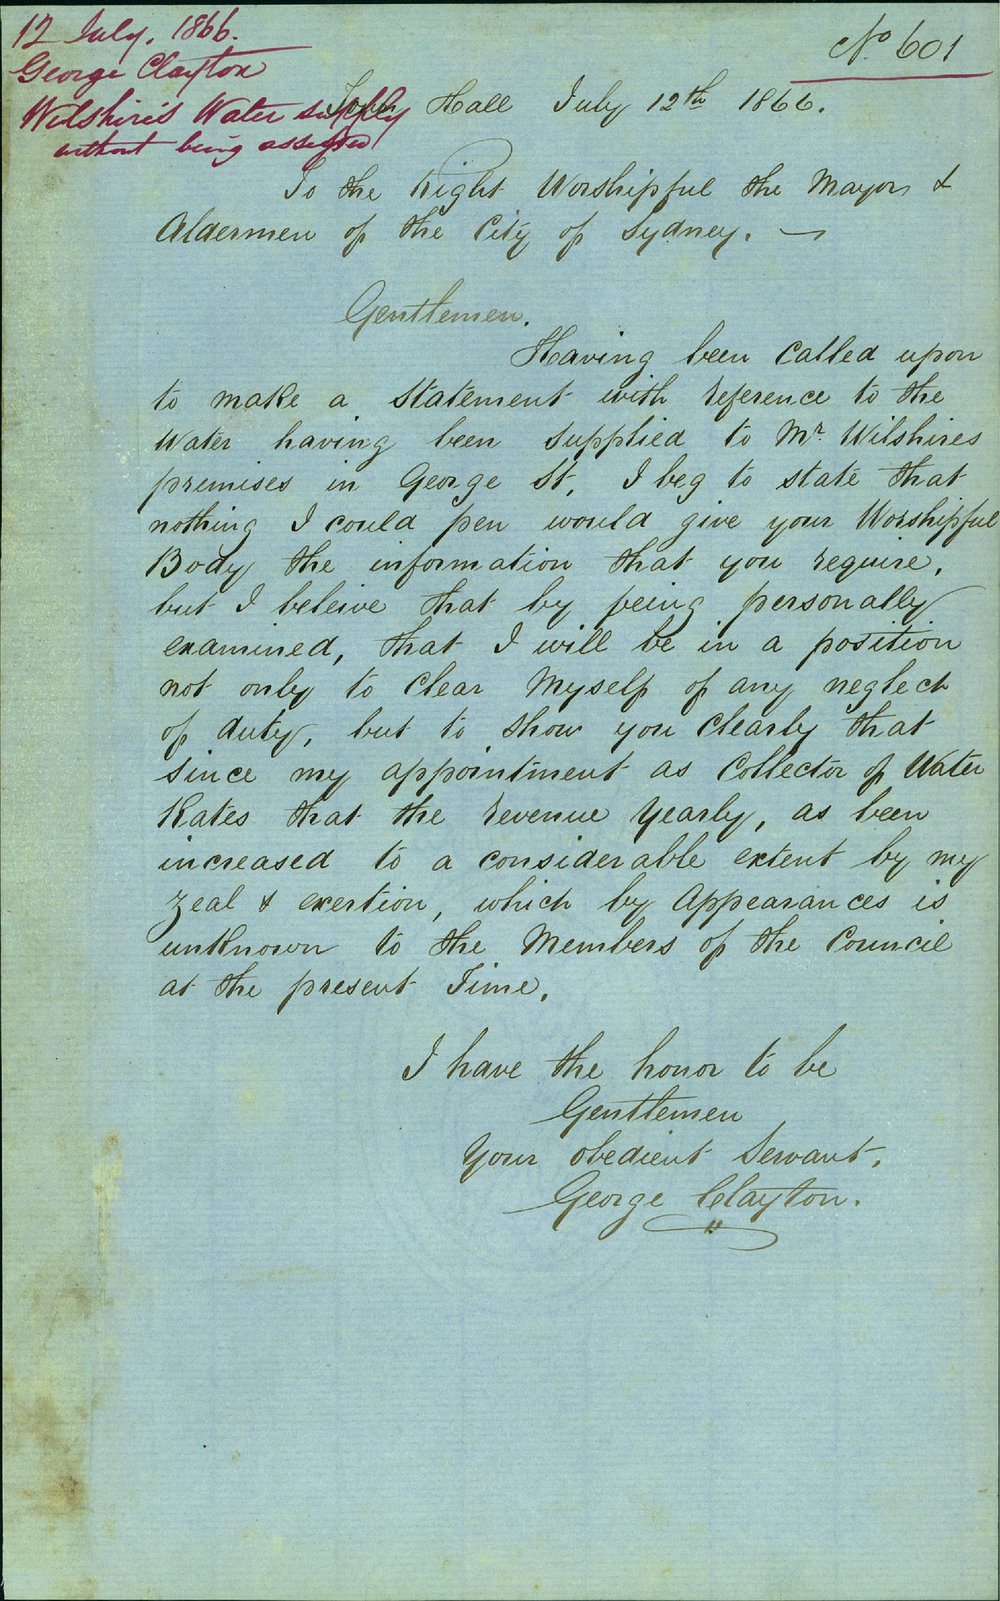 12 July, 1866.
George Clayton
Wilshire's Water supply
without being assessed
No. 601
Town Hall July 12th 1866.
To the Right Worshipful the Mayor &
Aldermen of the City of Sydney. —
Gentlemen.
Having been called upon
to make a statement with reference to the
Water having been supplied to Mr. Wilshires
premises in George St, I beg to state that
nothing I could pen would give your Worshipful
Body the information that you require,
but I beleive that by being personally
examined, that I will be in a position
not only to clear Myself of any neglect
of duty, but to show you clearly that
since my appointment as Collector of Water
Rates that the revenue yearly, as been
increased to a considerable extent by my
zeal & exertion, which by Appearances is
unknown to the Members of the Council
at the present Time.
I have the honor to be
Gentlemen
Your obedient Servant.
George Clayton.